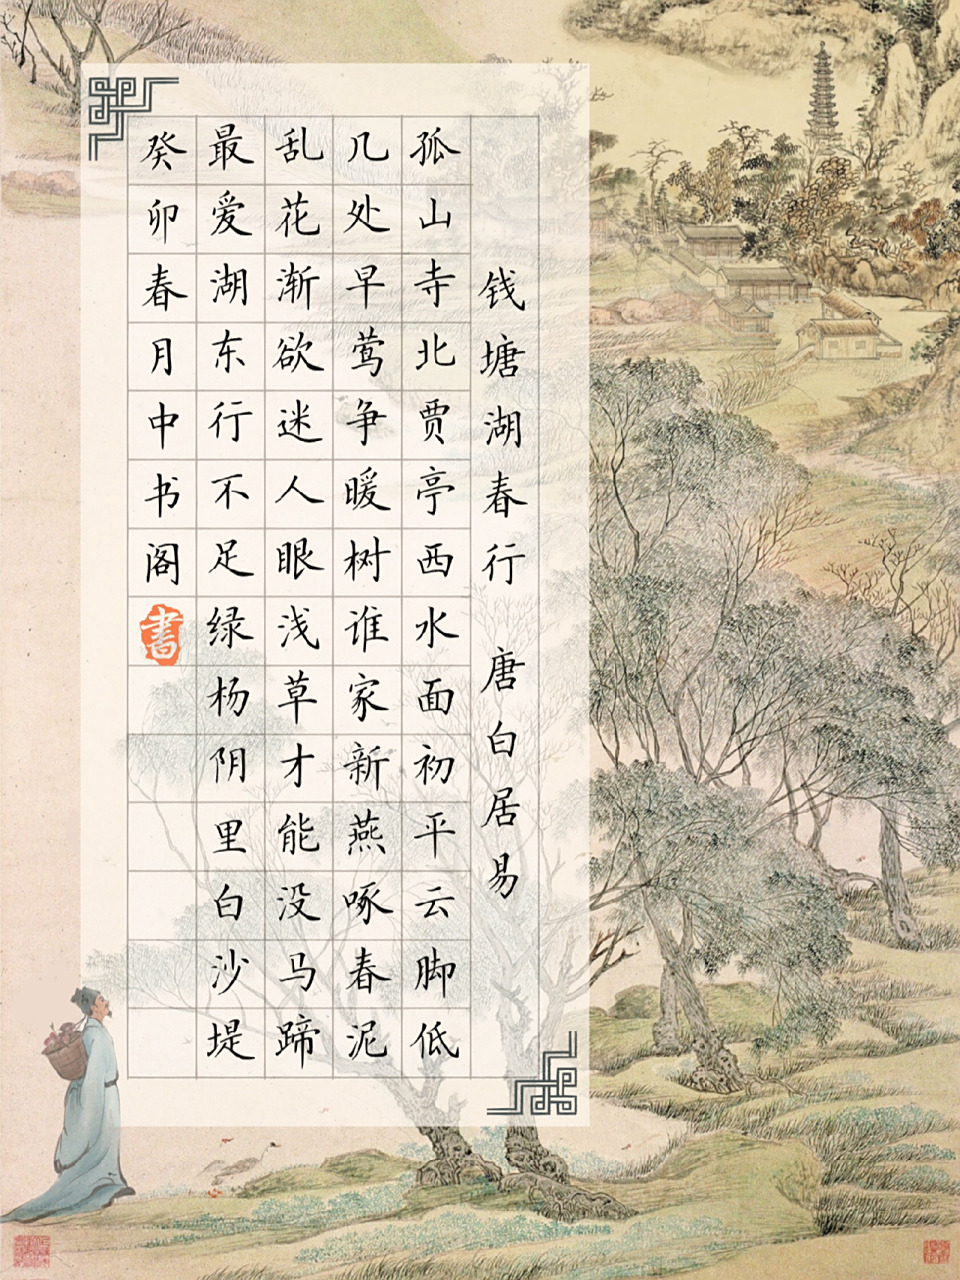 钱塘湖春行 唐白居易
孤山寺北贾亭西水面初平云脚低
几处早莺争暖树谁家新燕啄春泥
乱花渐欲迷人眼浅草才能没马蹄
最爱湖东行不足绿杨阴里白沙堤
癸卯春月中书阁
書